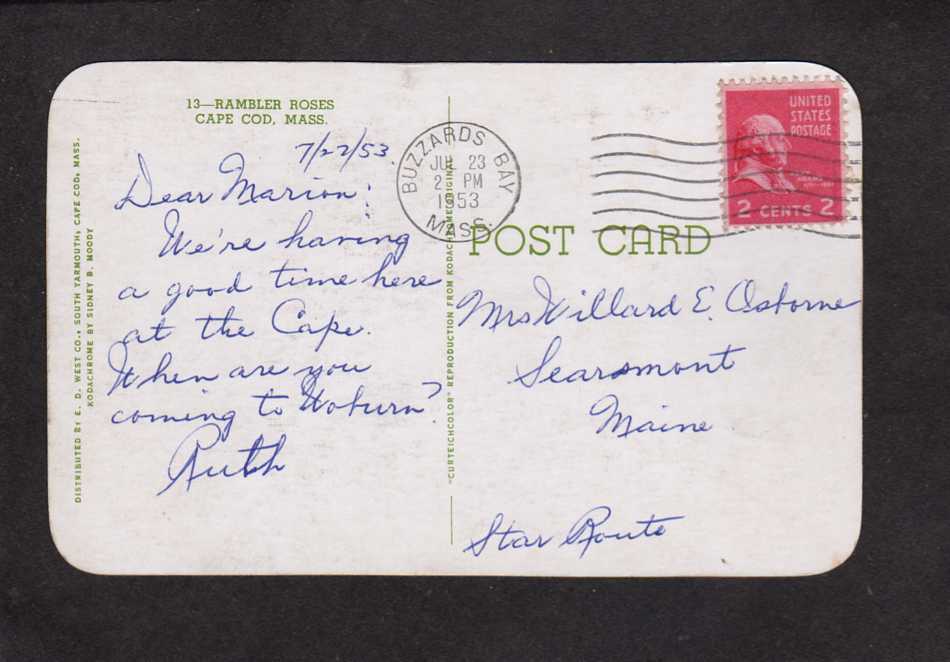 13—RAMBLER ROSES
CAPE COD, MASS.
7/22/53
Dear Marion:
We're having
a good time here
at the Cape.
When are you
coming to Woburn?
Ruth
DISTRIBUTED BY E. D. WEST CO., SOUTH YARMOUTH, CAPE COD, MASS.
KODACHROME BY SIDNEY B. MOODY
"CURTEICHCOLOR" REPRODUCTION FROM KODACHROME ORIGINAL
BUZZARDS BAY
JUL 23
2 PM
1953
MASS.
UNITED
STATES
POSTAGE
2 CENTS 2
POST CARD
Mrs Willard E. Osborne
Searsmont
Maine
Star Route